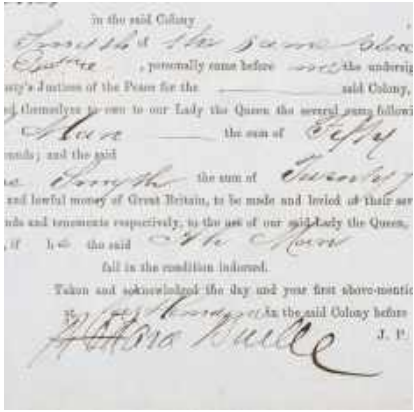 in the said Colony
Smyth & the same place
, personally came before me the undersig
sty's Justices of the Peace for the said Colony,
ed themselves to owe to our Lady the Queen the several sums followi
Man the sum of Fifty
ounds; and the said
Smyth the sum of Twenty
and lawful money of Great Britain, to be made and levied of their sev
nds and tenements respectively, to the use of our said Lady the Queen,
, if he the said Man
fail in the condition indorsed.
Taken and acknowledged the day and year first above-mentio
at in the said Colony before
J. P.